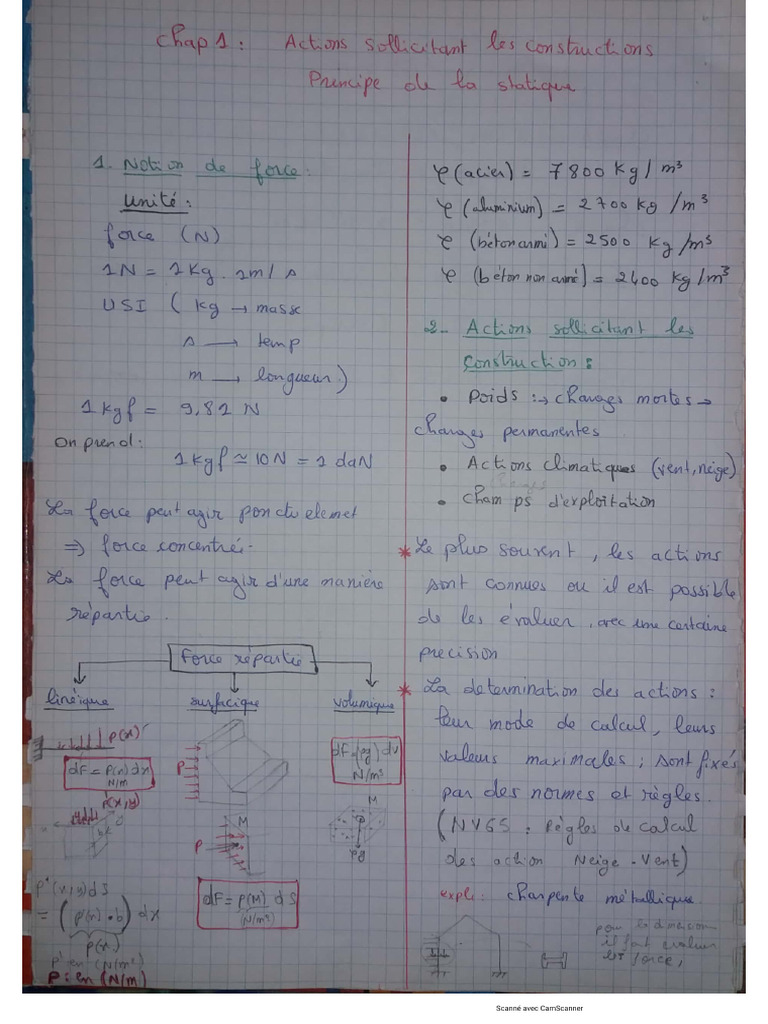 Chap 1 : Actions sollicitant les constructions
Principe de la statique
1. Notion de force :
Unité :
force (N)
1N = 1Kg . 1m / s
USI ( kg → masse
s → temp
m → longueur )
1 kgf = 9,81 N
on prend :
1 kgf ≃ 10 N = 1 daN
La force peut agir ponctuelemet
⇒ force concentré.
La force peut agir d'une manière
répartie.
Force répartie
linéique surfacique volumique
p(x)
dF = p(x) dx
N/m
p(x,y)
b
P
M
P
dF = p(M) dS
(N/m²)
dF = (ρg) dv
N/m³
M
ρg
p*(x,y) dS
= (p(x) • b) dx
p(x)
p* en (N/m²)
P : en (N/m)
ρ (acier) = 7800 Kg / m³
ρ (aluminium) = 2700 kg / m³
ρ (béton armé) = 2500 Kg / m³
ρ (béton non armé) = 2400 Kg / m³
2- Actions sollicitant les
construction :
• Poids : → charges mortes →
charges permanentes
• Actions climatiques (vent, neige)
• Champs d'exploitation
* Le plus souvent, les actions
sont connues ou il est possible
de les évaluer, avec une certaine
precision
* La determination des actions :
leur mode de calcul, leurs
valeurs maximales ; sont fixés
par des normes et règles.
(NV65 : Règles de calcul
des action Neige - Vent)
exple : charpente métallique.
pour la dimension
il faut évaluer
les force,
Scanné avec CamScanner